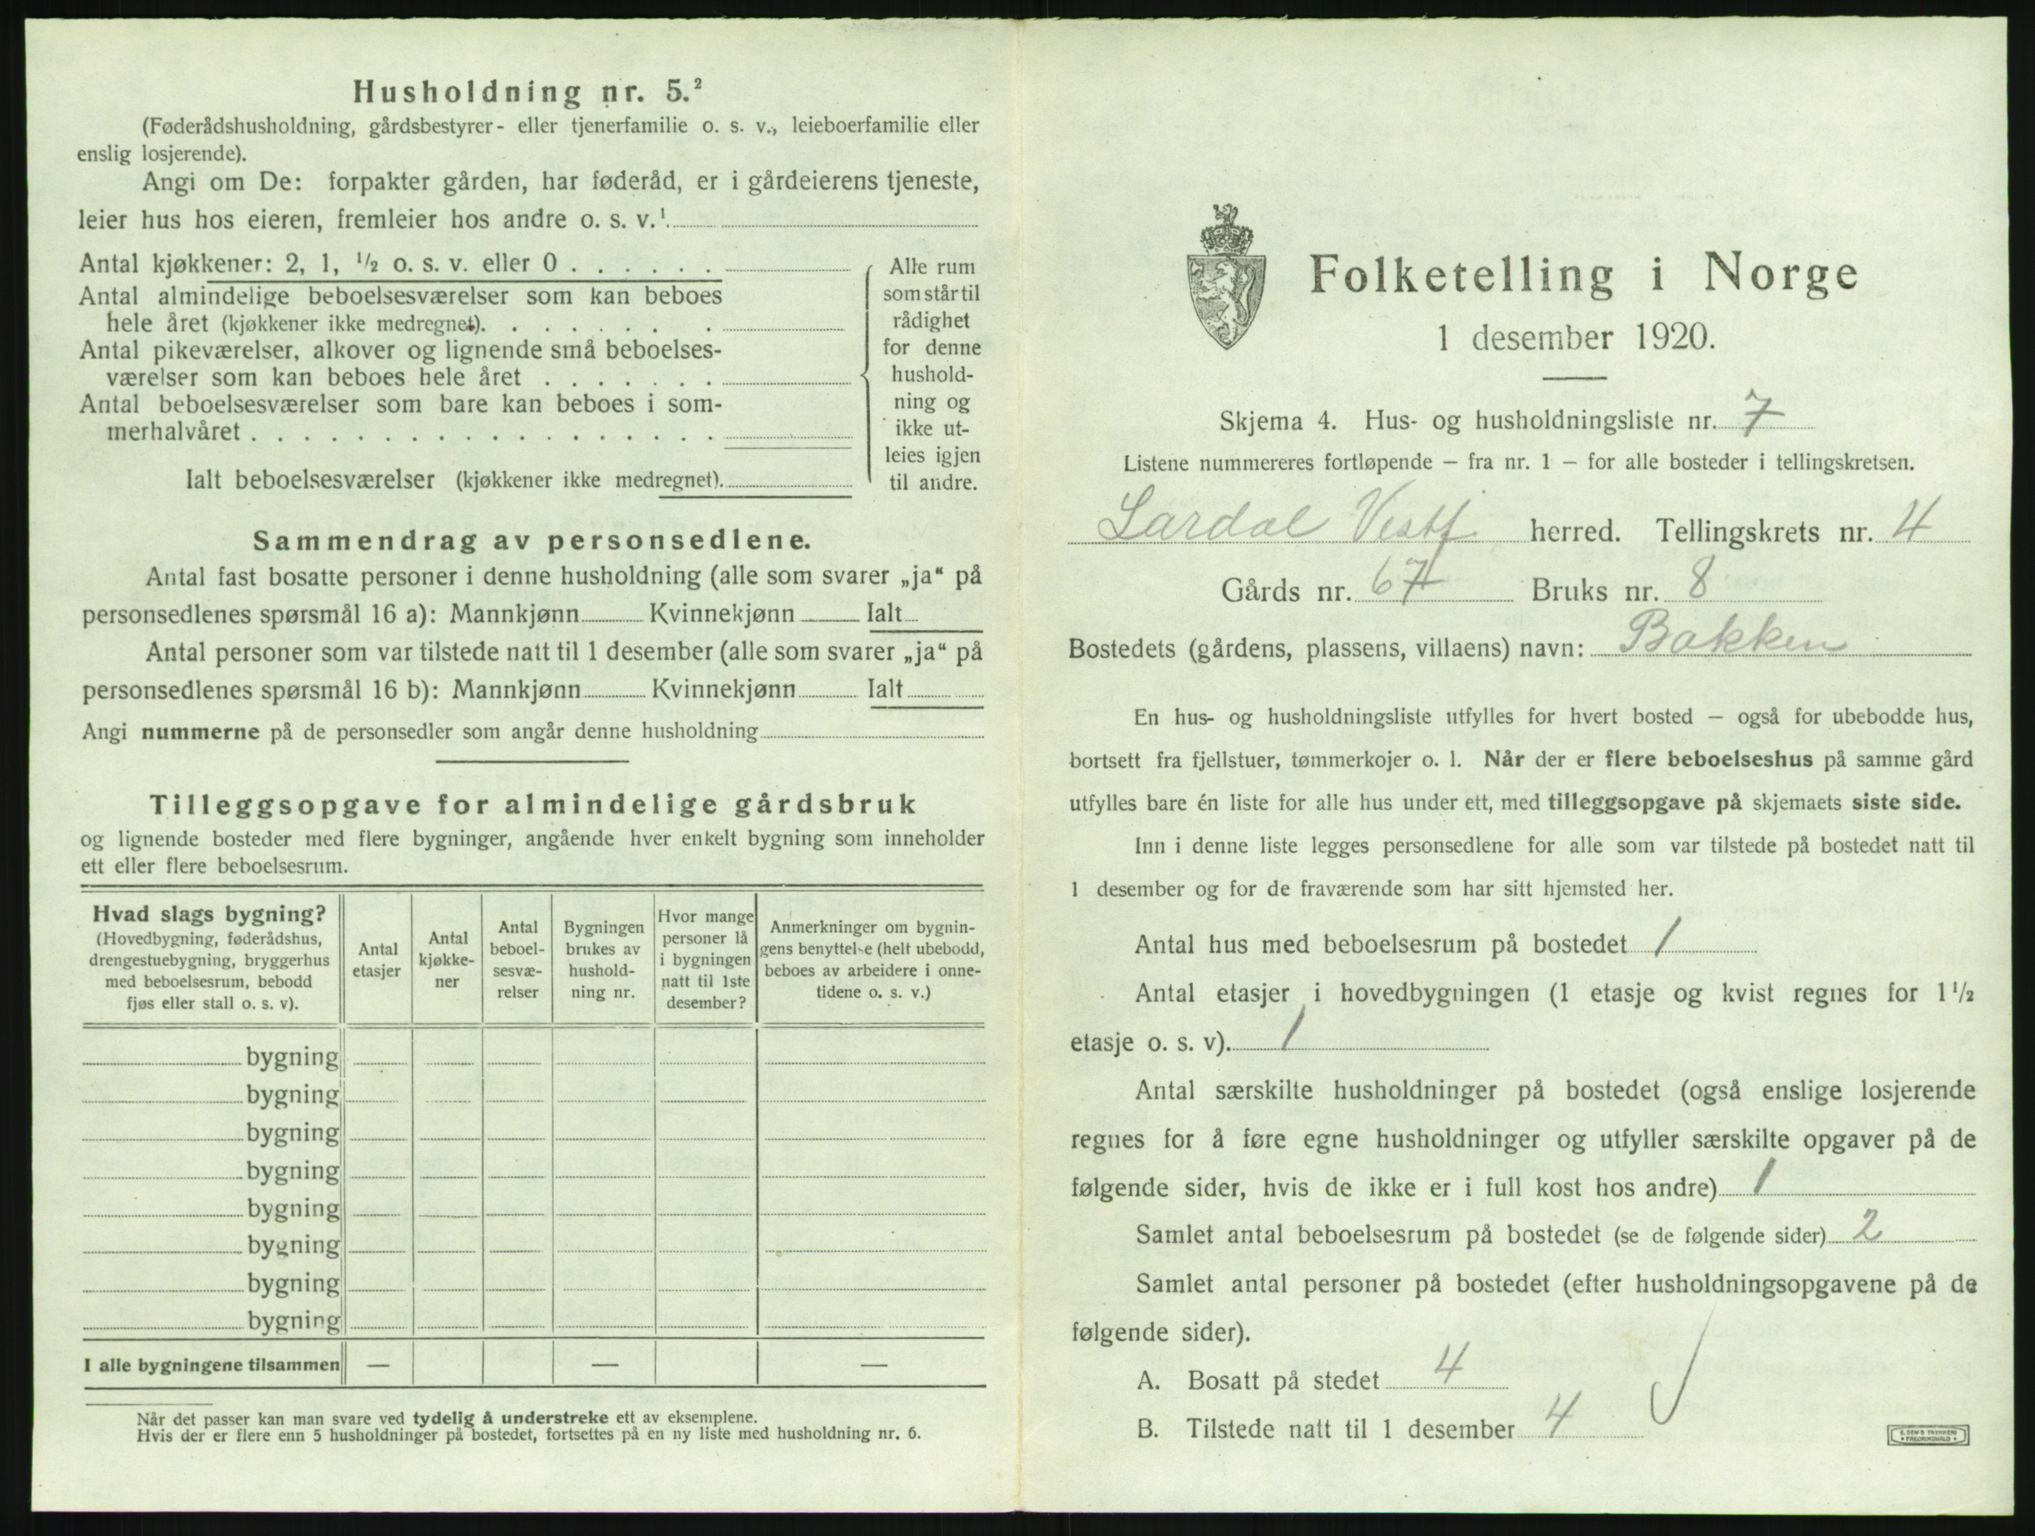 Husholdning nr. 5.²
(Føderådshusholdning, gårdsbestyrer- eller tjenerfamilie o. s. v., leieboerfamilie eller
enslig losjerende).
Angi om De: forpakter gården, har føderåd, er i gårdeierens tjeneste,
leier hus hos eieren, fremleier hos andre o. s. v.¹
Antal kjøkkener: 2, 1, ½ o. s. v. eller 0 . . . . . .
Antal almindelige beboelsesværelser som kan beboes
hele året (kjøkkener ikke medregnet). . . . . . . .
Antal pikeværelser, alkover og lignende små beboelses-
værelser som kan beboes hele året . . . . . . .
Antal beboelsesværelser som bare kan beboes i som-
merhalvåret . . . . . . . . . . . . . . . . . .
Ialt beboelsesværelser (kjøkkener ikke medregnet).
Alle rum
som står til
rådighet
for denne
hushold-
ning og
ikke ut-
leies igjen
til andre.
Sammendrag av personsedlene.
Antal fast bosatte personer i denne husholdning (alle som svarer „ja“ på
personsedlenes spørsmål 16 a): Mannkjønn Kvinnekjønn Ialt
Antal personer som var tilstede natt til 1 desember (alle som svarer „ja“ på
personsedlenes spørsmål 16 b): Mannkjønn Kvinnekjønn Ialt
Angi nummerne på de personsedler som angår denne husholdning
Tilleggsopgave for almindelige gårdsbruk
og lignende bosteder med flere bygninger, angående hver enkelt bygning som inneholder
ett eller flere beboelsesrum.
Hvad slags bygning?
(Hovedbygning, føderådshus,
drengestuebygning, bryggerhus
med beboelsesrum, bebodd
fjøs eller stall o. s. v).
Antal
etasjer
Antal
kjøkke-
ner
Antal
beboel-
sesvæ-
relser
Bygningen
brukes av
hushold-
ning nr.
Hvor mange
personer lå
i bygningen
natt til 1ste
desember?
Anmerkninger om bygnin-
gens benyttelse (helt ubebodd,
beboes av arbeidere i onne-
tidene o. s. v.)
bygning
bygning
bygning
bygning
bygning
bygning
bygning
bygning
I alle bygningene tilsammen — — —
Når det passer kan man svare ved tydelig å understreke ett av eksemplene.
Hvis der er flere enn 5 husholdninger på bostedet, fortsettes på en ny liste med husholdning nr. 6.
Folketelling i Norge
1 desember 1920.
Skjema 4. Hus- og husholdningsliste nr. 7
Listene nummereres fortløpende – fra nr. 1 – for alle bosteder i tellingskretsen.
Lardal Vestf herred. Tellingskrets nr. 4
Gårds nr. 67 Bruks nr. 8
Bostedets (gårdens, plassens, villaens) navn: Bakken
En hus- og husholdningsliste utfylles for hvert bosted – også for ubebodde hus,
bortsett fra fjellstuer, tømmerkojer o. l. Når der er flere beboelseshus på samme gård
utfylles bare én liste for alle hus under ett, med tilleggsopgave på skjemaets siste side.
Inn i denne liste legges personsedlene for alle som var tilstede på bostedet natt til
1 desember og for de fraværende som har sitt hjemsted her.
Antal hus med beboelsesrum på bostedet 1
Antal etasjer i hovedbygningen (1 etasje og kvist regnes for 1½
etasje o. s. v). 1
Antal særskilte husholdninger på bostedet (også enslige losjerende
regnes for å føre egne husholdninger og utfyller særskilte opgaver på de
følgende sider, hvis de ikke er i full kost hos andre) 1
Samlet antal beboelsesrum på bostedet (se de følgende sider) 2
Samlet antal personer på bostedet (efter husholdningsopgavene på de
følgende sider).
A. Bosatt på stedet 4
B. Tilstede natt til 1 desember 4